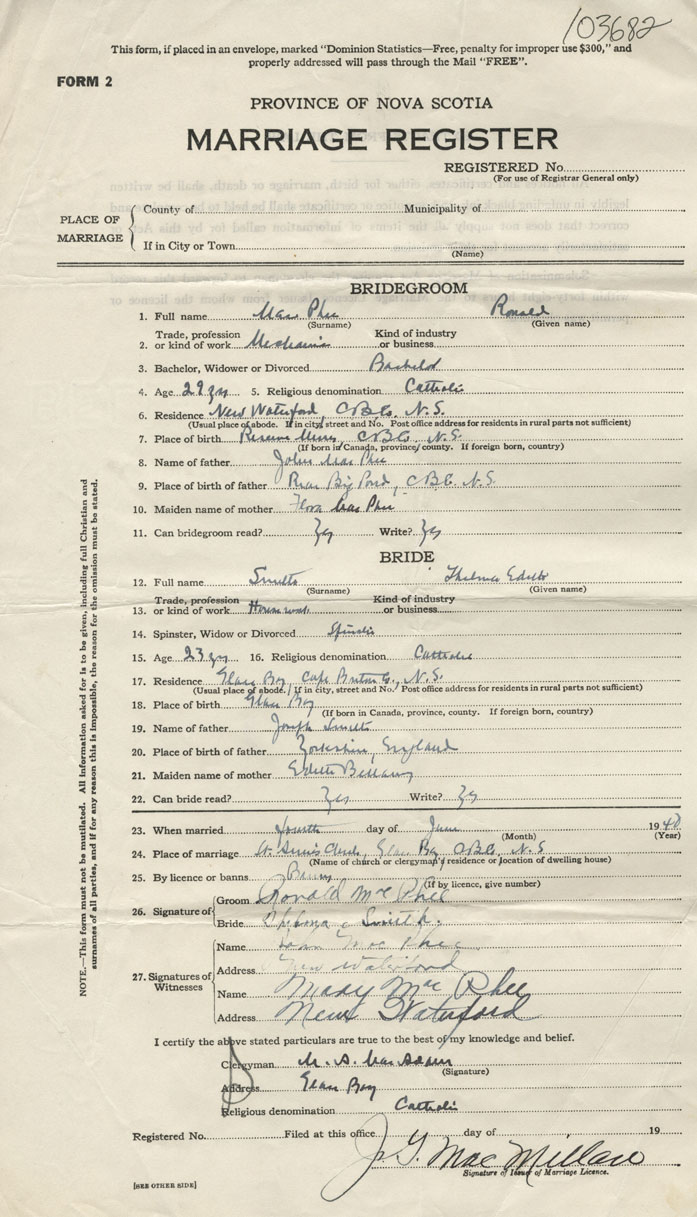 103682
This form, if placed in an envelope, marked "Dominion Statistics—Free, penalty for improper use $300," and
properly addressed will pass through the Mail "FREE".
FORM 2
PROVINCE OF NOVA SCOTIA
MARRIAGE REGISTER
REGISTERED No.
(For use of Registrar General only)
PLACE OF MARRIAGE
County of Municipality of
If in City or Town
(Name)
BRIDEGROOM
1. Full name Mac Phee Ronald
(Surname) (Given name)
Trade, profession Kind of industry
2. or kind of work Mechanic or business
3. Bachelor, Widower or Divorced Bachelor
4. Age 29 yrs 5. Religious denomination Catholic
6. Residence New Waterford, C.B.Co. N.S.
(Usual place of abode. If in city, street and No. Post office address for residents in rural parts not sufficient)
7. Place of birth Reserve Mines, C.B.Co. N.S.
(If born in Canada, province, county. If foreign born, country)
8. Name of father John Mac Phee
9. Place of birth of father Rear Big Pond, C.B.C. N.S.
10. Maiden name of mother Flora Mac Phee
11. Can bridegroom read? Yes Write? Yes
BRIDE
12. Full name Smith Thelma Edith
(Surname) (Given name)
Trade, profession Kind of industry
13. or kind of work Housework or business
14. Spinster, Widow or Divorced Spinster
15. Age 23 yrs 16. Religious denomination Catholic
17. Residence Glace Bay, Cape Breton Co., N.S.
(Usual place of abode. If in city, street and No. Post office address for residents in rural parts not sufficient)
18. Place of birth Glace Bay
(If born in Canada, province, county. If foreign born, country)
19. Name of father Joseph Smith
20. Place of birth of father Yorkshire, England
21. Maiden name of mother Edith Bellamy
22. Can bride read? Yes Write? Yes
23. When married fourth day of June 1940
(Month) (Year)
24. Place of marriage St. Church, Glace Bay C.B.Co. N.S.
(Name of church or clergyman's residence or location of dwelling house)
25. By licence or banns Banns
(If by licence, give number)
26. Signature of Groom Ronald Mc Phee
Bride Thelma Smith.
27. Signatures of Witnesses
Name Mac Phee
Address New Waterford
Name Mary Mc Phee
Address New Waterford
I certify the above stated particulars are true to the best of my knowledge and belief.
Clergyman M. S.
(Signature)
Address Glace Bay
Religious denomination Catholic
Registered No. Filed at this office day of 19
J. G. Mac Millan
Signature of Issuer of Marriage Licence.
[SEE OTHER SIDE]
NOTE.—This form must not be mutilated. All information asked for is to be given, including full Christian and
surnames of all parties, and if for any reason this is impossible, the reason for the omission must be stated.